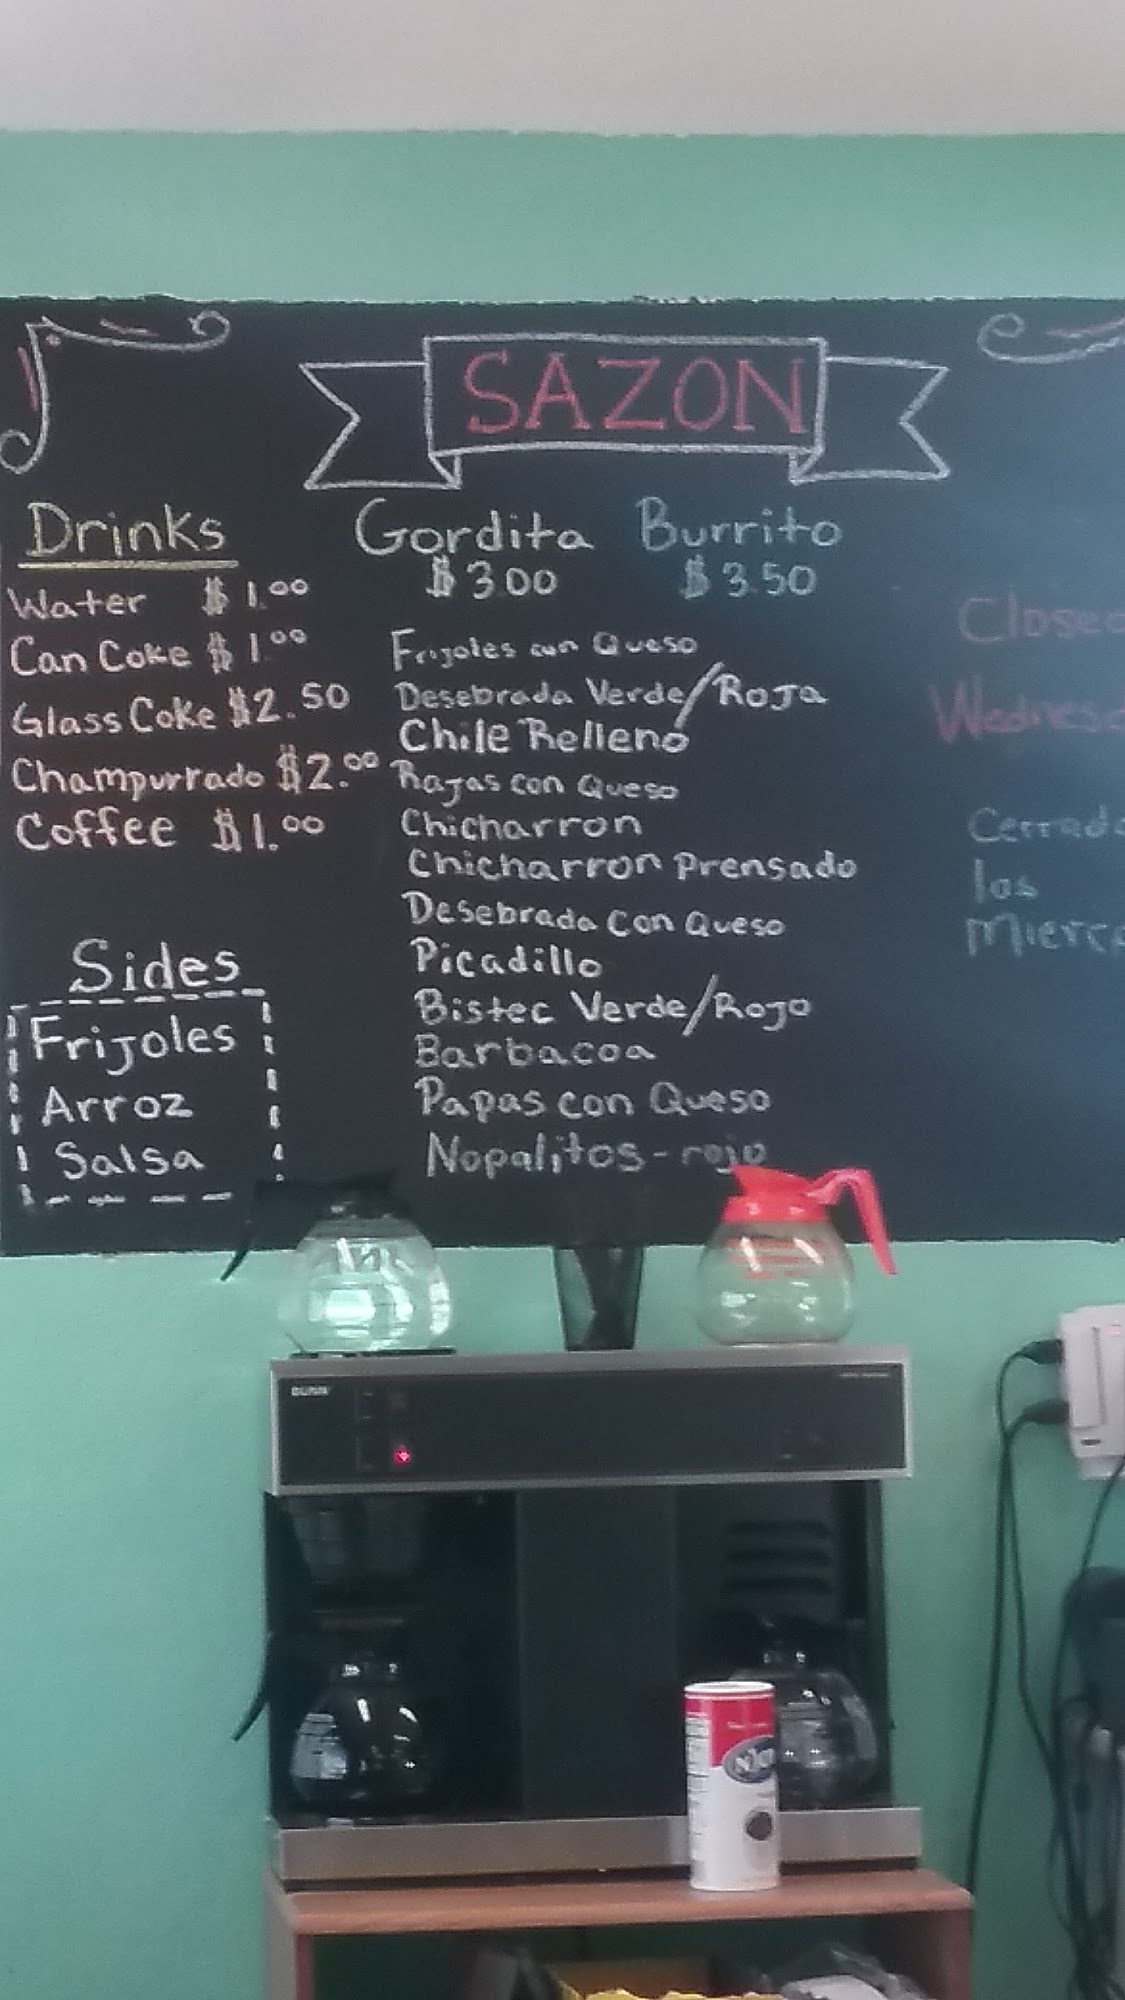 SAZON
Drinks
Water $1.00
Can Coke $1.00
Glass Coke $2.50
Champurrado $2.00
Coffee $1.00
Sides
Frijoles
Arroz
Salsa
Gordita Burrito
$3.00 $3.50
Frijoles con Queso
Desebrada Verde/Roja
Chile Relleno
Rajas con Queso
Chicharron
Chicharron Prensado
Desebrada Con Queso
Picadillo
Bistec Verde/Rojo
Barbacoa
Papas con Queso
Nopalitos-rojo
Closed
Wednesd
Cerrado
los
Mierco
BUNN